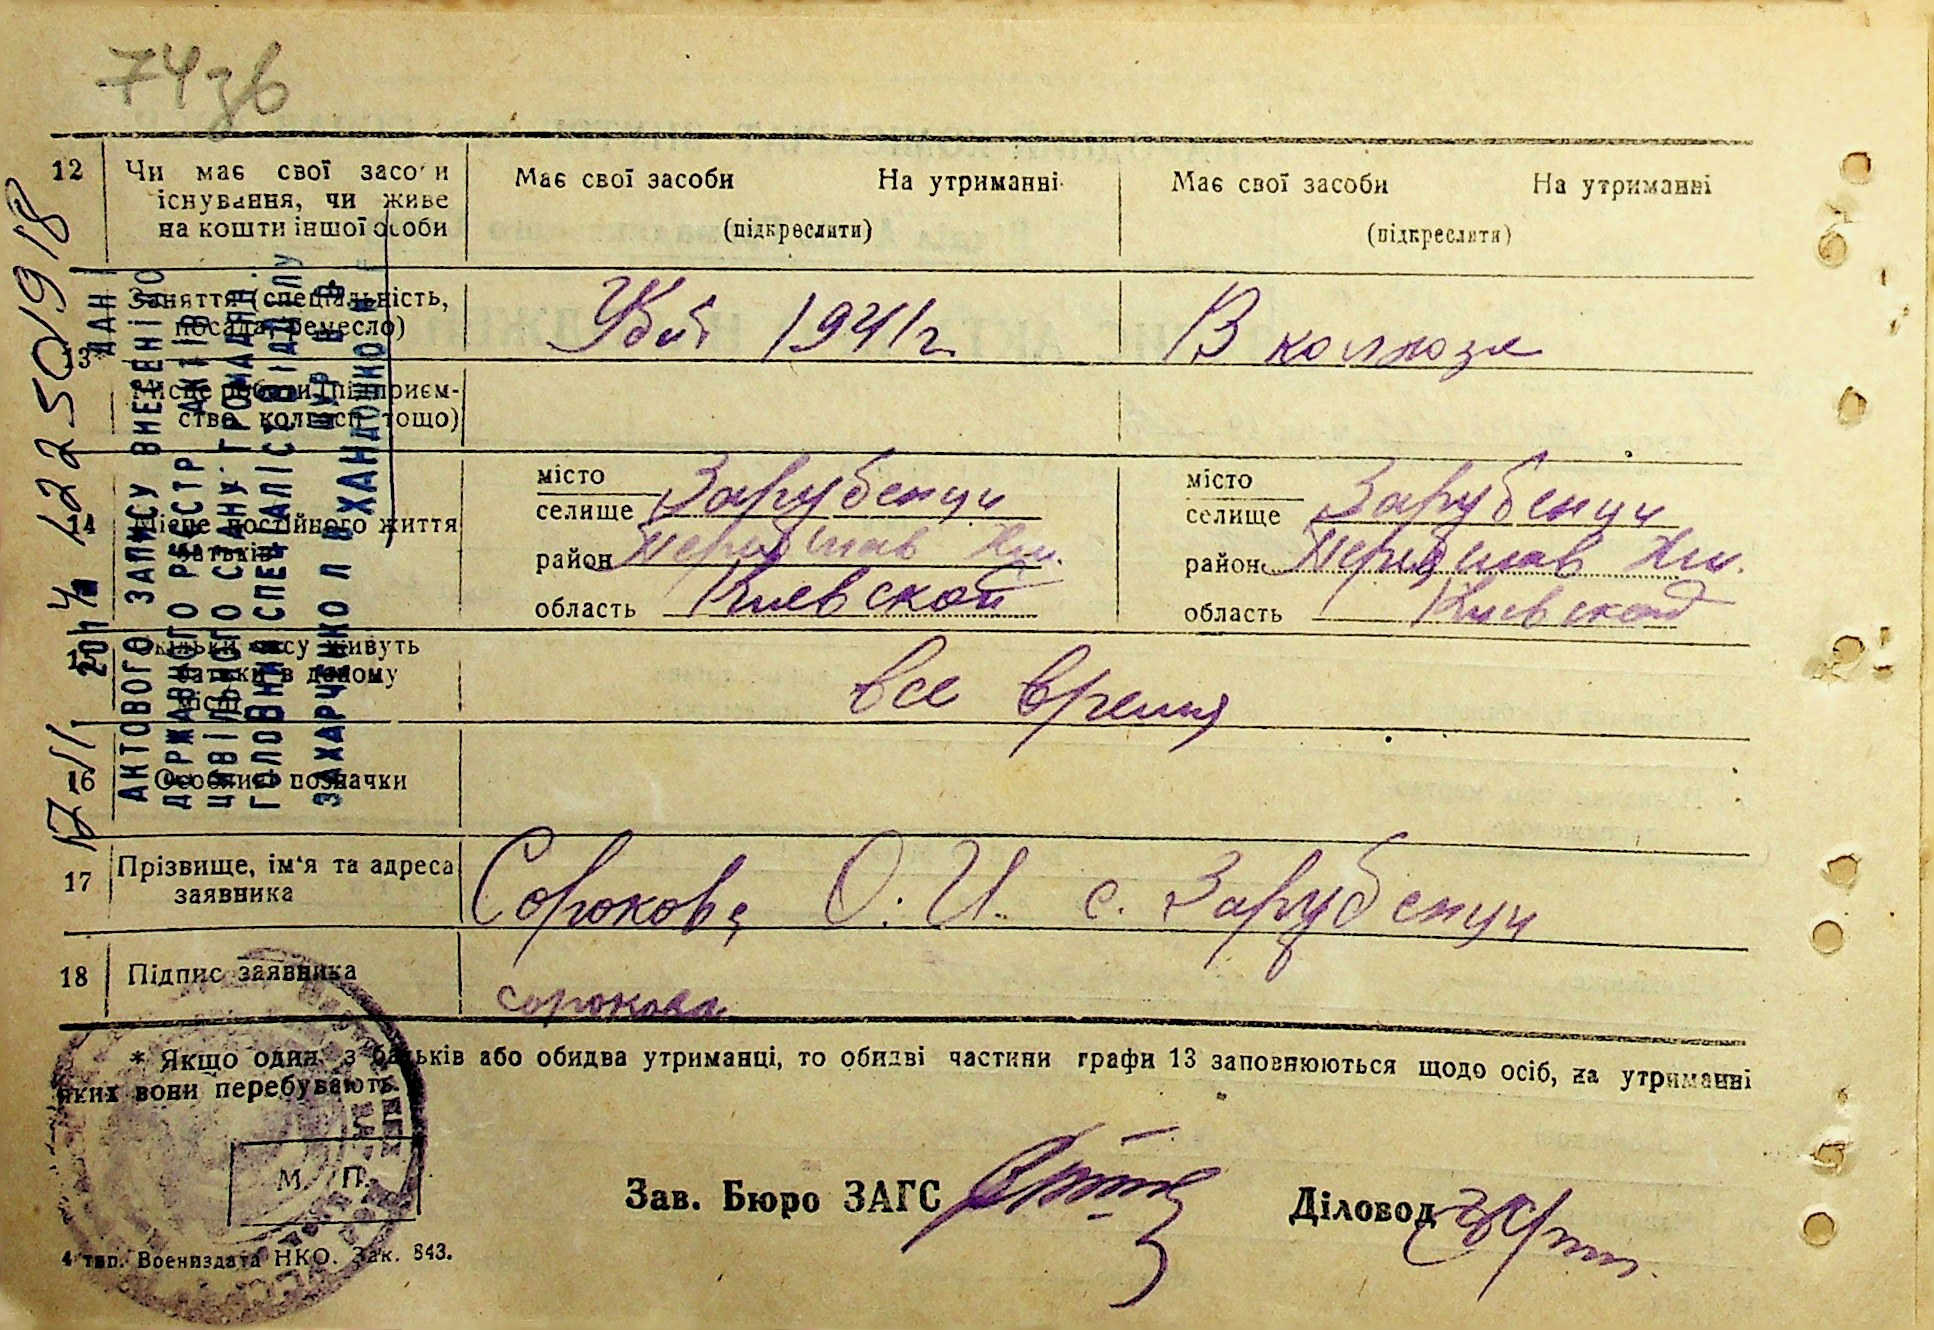 74зв
12 Чи має свої засоби Має свої засоби На утриманні Має свої засоби На утриманні
існування, чи живе
на кошти іншої особи (підкреслити) (підкреслити)
Заняття (спеціальність,
посада, ремесло) Убит 1941г. В колхозе
13*
Місце роботи (підприєм-
ство, колгосп тощо)
14 Місце постійного життя батьків
місто Зарубенци місто Зарубенци
селище селище
район Переяслав Хм. район Переяслав Хм.
область Киевской область Киевской
15 Скільки часу живуть
батьки в даному
місці все время
16 Особливі позначки
17 Прізвище, ім'я та адреса
заявника Сорокова О. И. с. Зарубенци
18 Підпис заявника Сорокова
* Якщо один з батьків або обидва утриманці, то обидві частини графи 13 заповнюються щодо осіб, на утриманні
яких вони перебувають.
М. П.
Зав. Бюро ЗАГС Діловод
4 тип. Воениздата НКО. Зак. 843.
ДАНІ
АКТОВОГО ЗАПИСУ ВНЕСЕНІ ДО
ДЕРЖАВНОГО РЕЄСТР АКТІВ
ЦИВІЛЬНОГО СТАНУ ГРОМАДЯН
ГОЛОВНИЙ СПЕЦІАЛІСТ ВІДДІЛУ
ЗАХАРЧЕНКО Л В ХАНДОЖКО